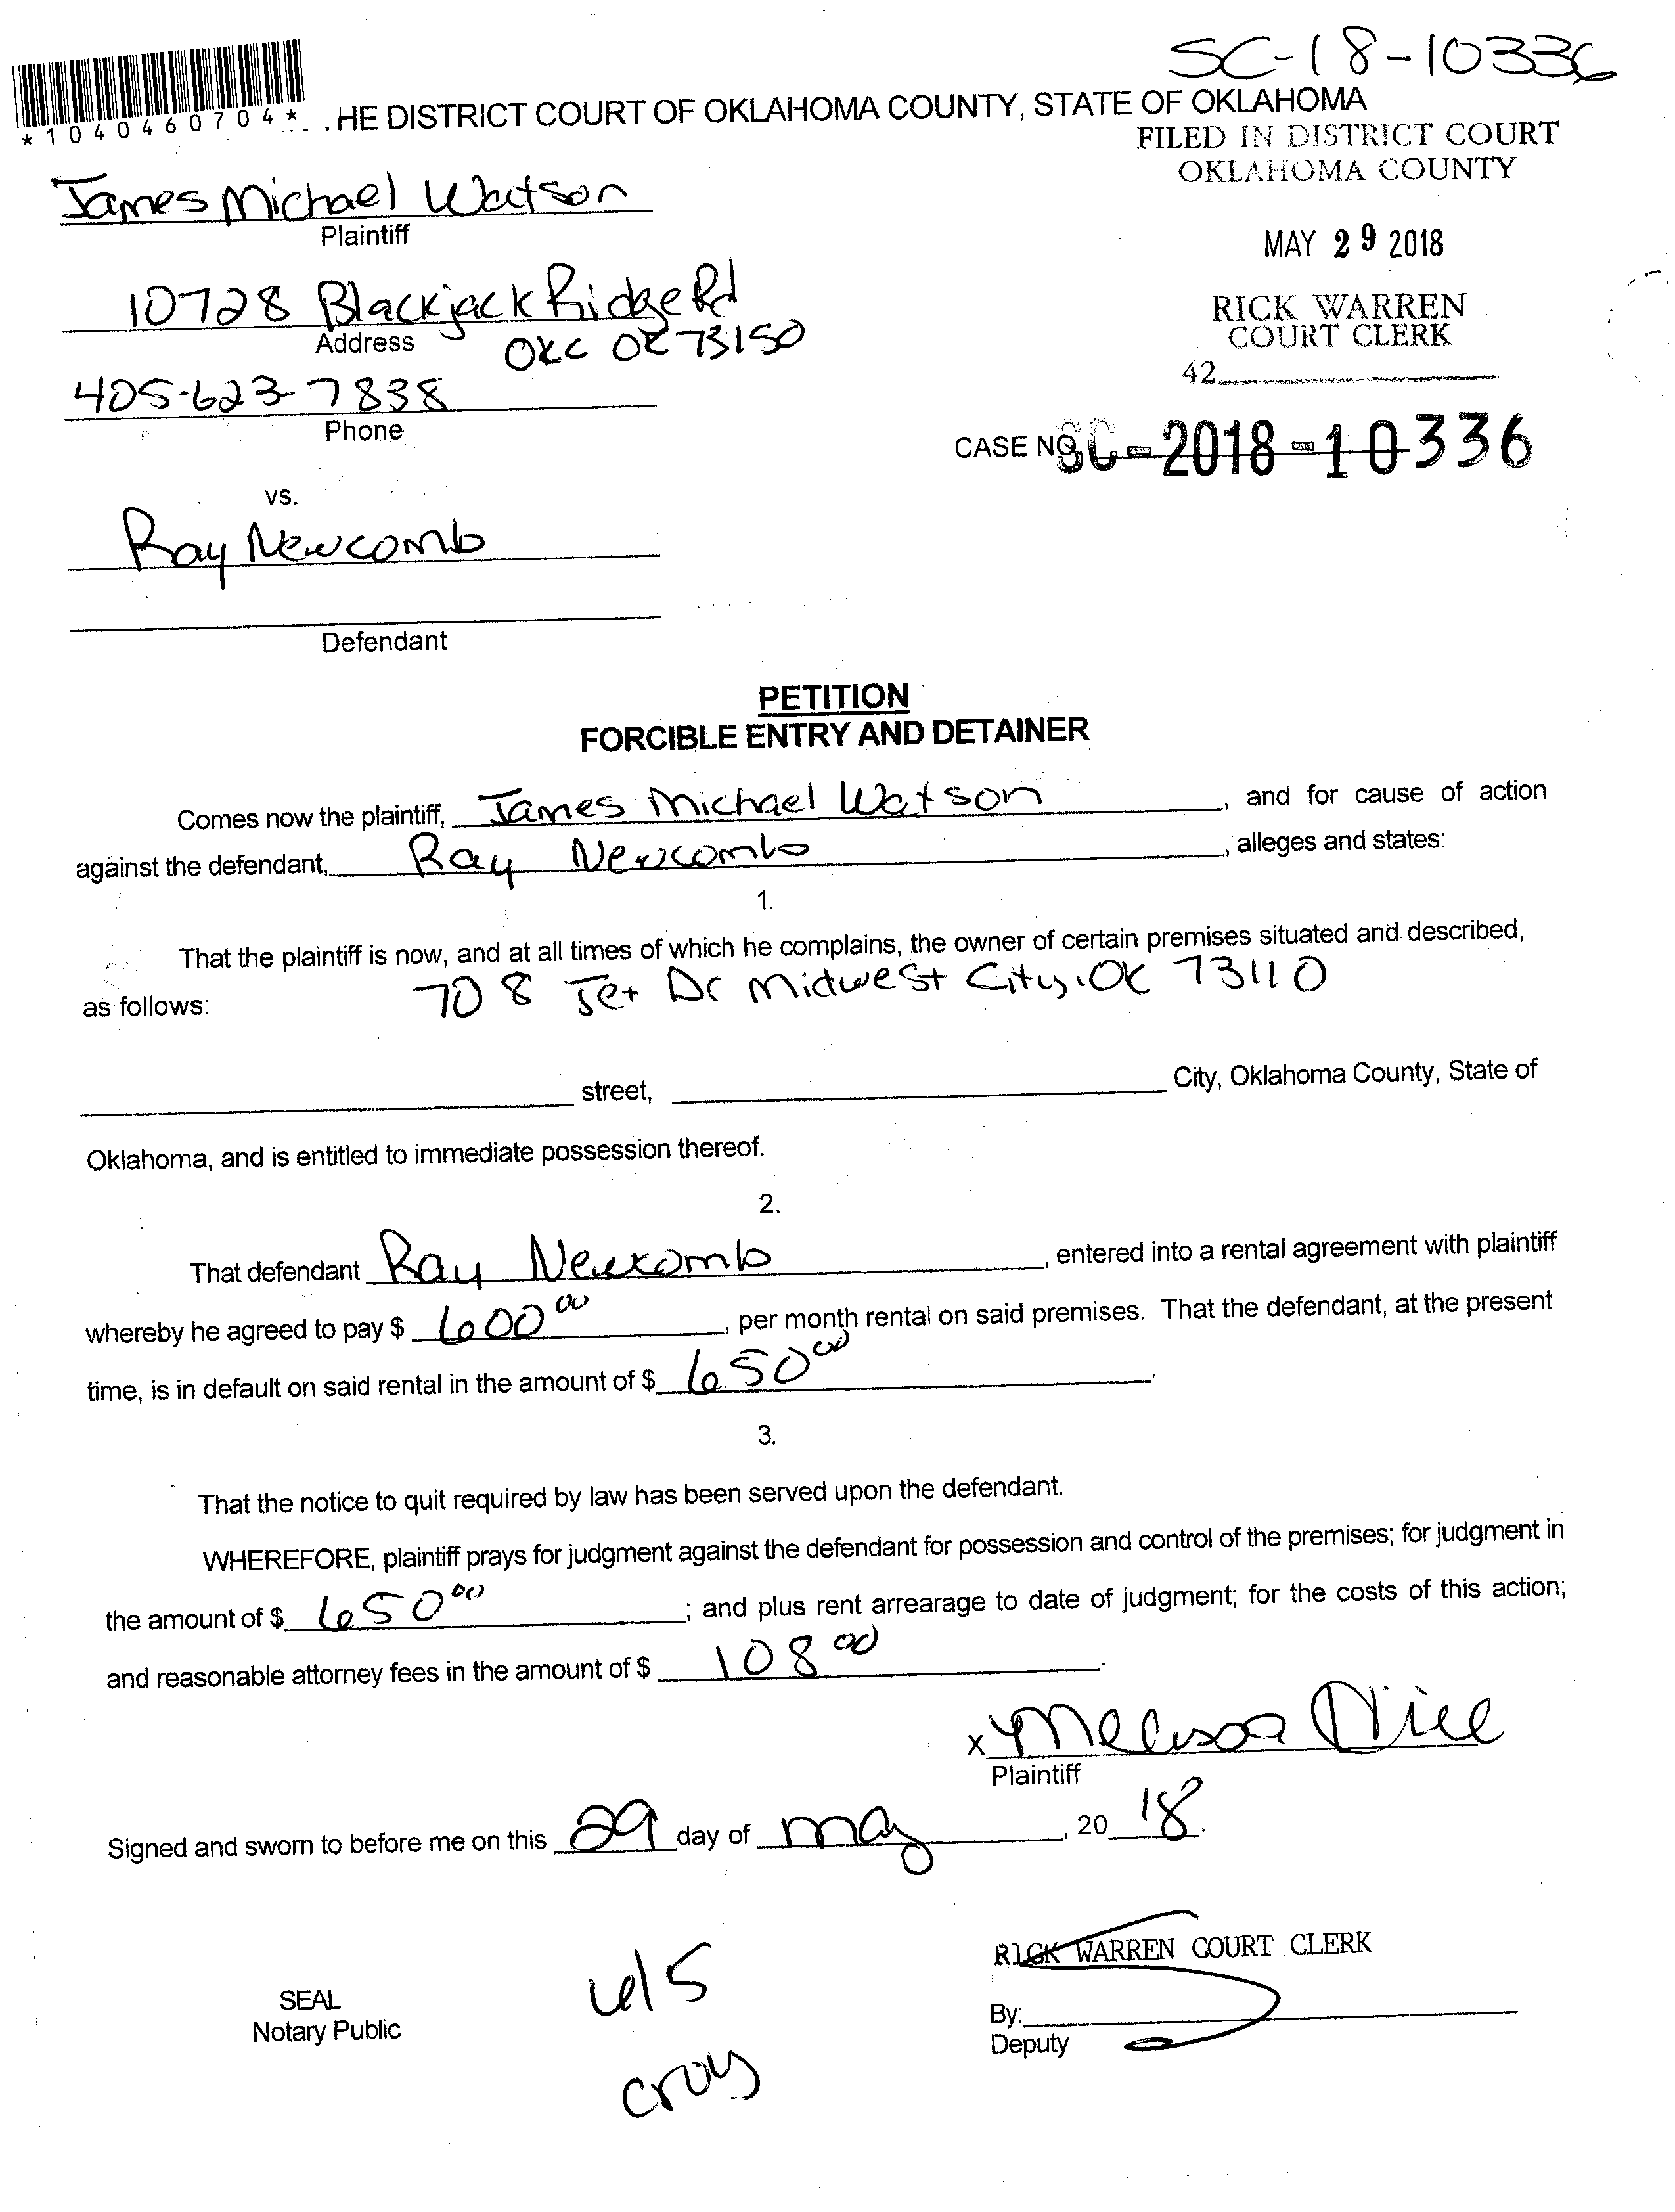 SC-18-10336
*1040460704*
HE DISTRICT COURT OF OKLAHOMA COUNTY, STATE OF OKLAHOMA
FILED IN DISTRICT COURT
OKLAHOMA COUNTY
James Michael Watson
Plaintiff
MAY 29 2018
10728 Blackjack Ridge Rd
Address OKC OK 73150
RICK WARREN
COURT CLERK
42
405-623-7838
Phone
CASE NO. SC-2018-10336
vs.
Ray Newcomb
Defendant
PETITION
FORCIBLE ENTRY AND DETAINER
Comes now the plaintiff, James Michael Watson, and for cause of action
against the defendant, Ray Newcomb, alleges and states:
1.
That the plaintiff is now, and at all times of which he complains, the owner of certain premises situated and described,
as follows: 708 Jet Dr Midwest City, OK 73110
street, City, Oklahoma County, State of
Oklahoma, and is entitled to immediate possession thereof.
2.
That defendant Ray Newcomb, entered into a rental agreement with plaintiff
whereby he agreed to pay $ 600 00, per month rental on said premises. That the defendant, at the present
time, is in default on said rental in the amount of $ 650 00.
3.
That the notice to quit required by law has been served upon the defendant.
WHEREFORE, plaintiff prays for judgment against the defendant for possession and control of the premises; for judgment in
the amount of $ 650 00; and plus rent arrearage to date of judgment; for the costs of this action;
and reasonable attorney fees in the amount of $ 108 00.
x Melissa
Plaintiff
Signed and sworn to before me on this 29 day of may, 20 18.
RICK WARREN COURT CLERK
SEAL
Notary Public
By:
Deputy